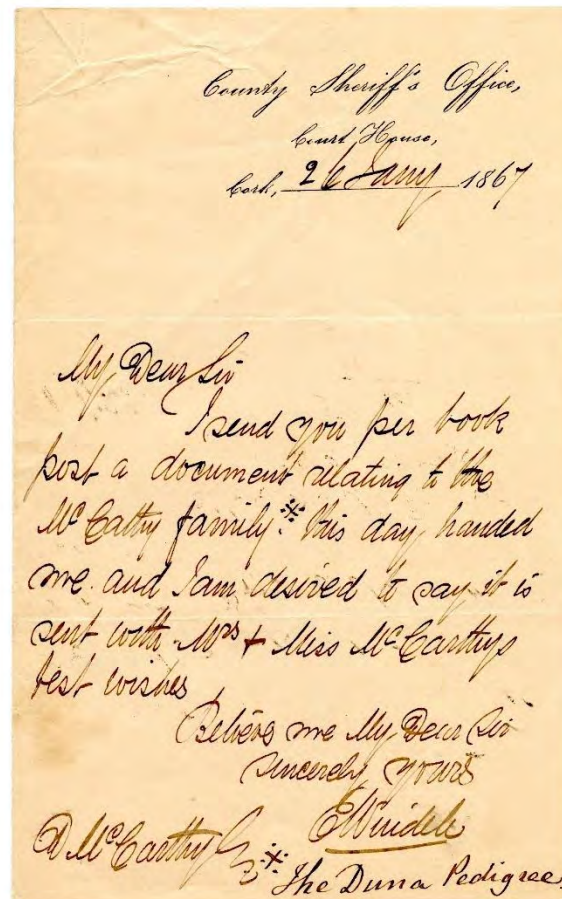 County Sheriff's Office,
Court House,
Cork, 26 Jany 1867
My Dear Sir
I send you per book
post a document relating to the
McCathy family ※ this day handed
me and I am desired to say it is
sent with Mrs + Miss McCarthys
best wishes
Believe me My Dear Sir
sincerely yours
EWindele
D McCarthy
※ The Duna Pedigree.